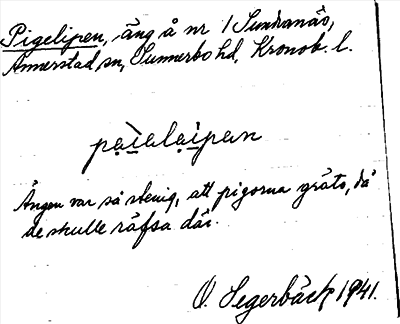 Pigelipen, äng å nr 1 Sunnanäs,
Annerstad sn, Sunnerbo hd, Kronob. l.
pa̤i̤ala̤i̤pan
Ängen var så stenig, att pigorna gräto, då
de skulle räfsa där.
O. Segerbäck 1941.